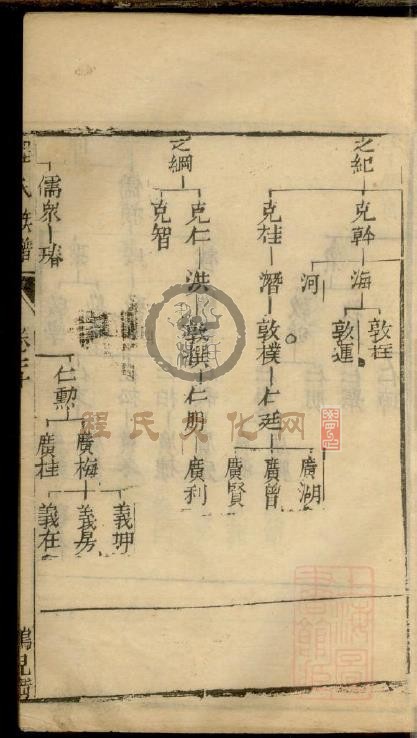 之紀
克幹
海
敦桎
敦運
河
克桂
潛
敦樸
仁廷
廣湖
廣曾
廣賢
之綱
克仁
洪
仁朋
廣利
克智
儒衆
瑃
仁勳
廣梅
廣桂
義坤
義房
義在
程氏族譜
程氏文化网